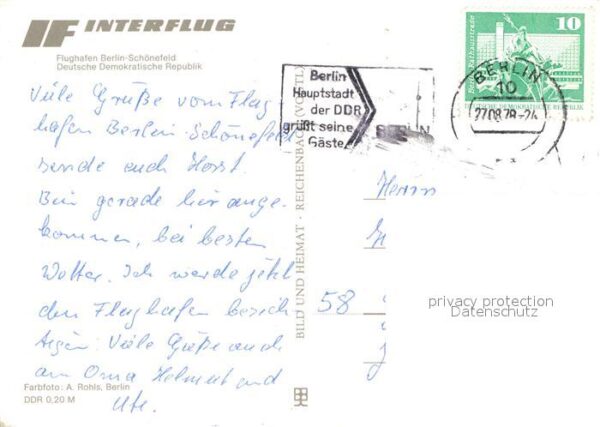 IF INTERFLUG
Flughafen Berlin-Schönefeld
Deutsche Demokratische Republik
Viele Grüße vom Flug
hafen Berlin-Schönefeld
sendet euch Horst.
Bin gerade hier ange-
kommen, bei besten
Wetter. Ich werde jetzt
den Flughafen besich
tigen. Viele Grüße auch
an Oma Helmut und
Ute.
Farbfoto: A. Rohls, Berlin
DDR 0,20 M
BILD UND HEIMAT · REICHENBACH (VOGTL)
Berlin
Hauptstadt
der DDR
grüßt seine
Gäste
BERLIN
BERLIN
10
27.08.78-24
10
DEUTSCHE DEMOKRATISCHE REPUBLIK
Herrn
58
privacy protection
Datenschutz